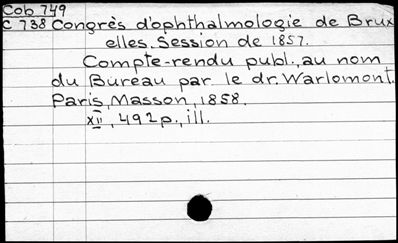 Cob 749
C 738 Congrès d'ophthalmologie de Brux
elles. Session de 1857.
Compte-rendu publ., au nom
du Bureau par le dr. Warlomont.
Paris, Masson, 1858.
XII, 492p., ill.